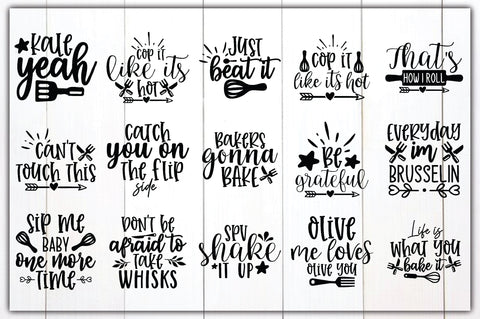 Kale
yeah
COP IT
like its
hot
JUST
beat it
COP IT
like its hot
That's
HOW I ROLL
CAN'T
TOUCH THIS
CATCH
you on
THE FLIP
side
BAKERS
gonna
BAKE
Be
grateful
EVERYDAY
im
BRUSSELIN
SIP ME
BABY
ONE MORE
TIME
DON'T BE
afraid to
TAKE
WHISKS
SPV
shake
IT UP
olive
me loves
OLIVE YOU
Life is
WHAT YOU
bake it